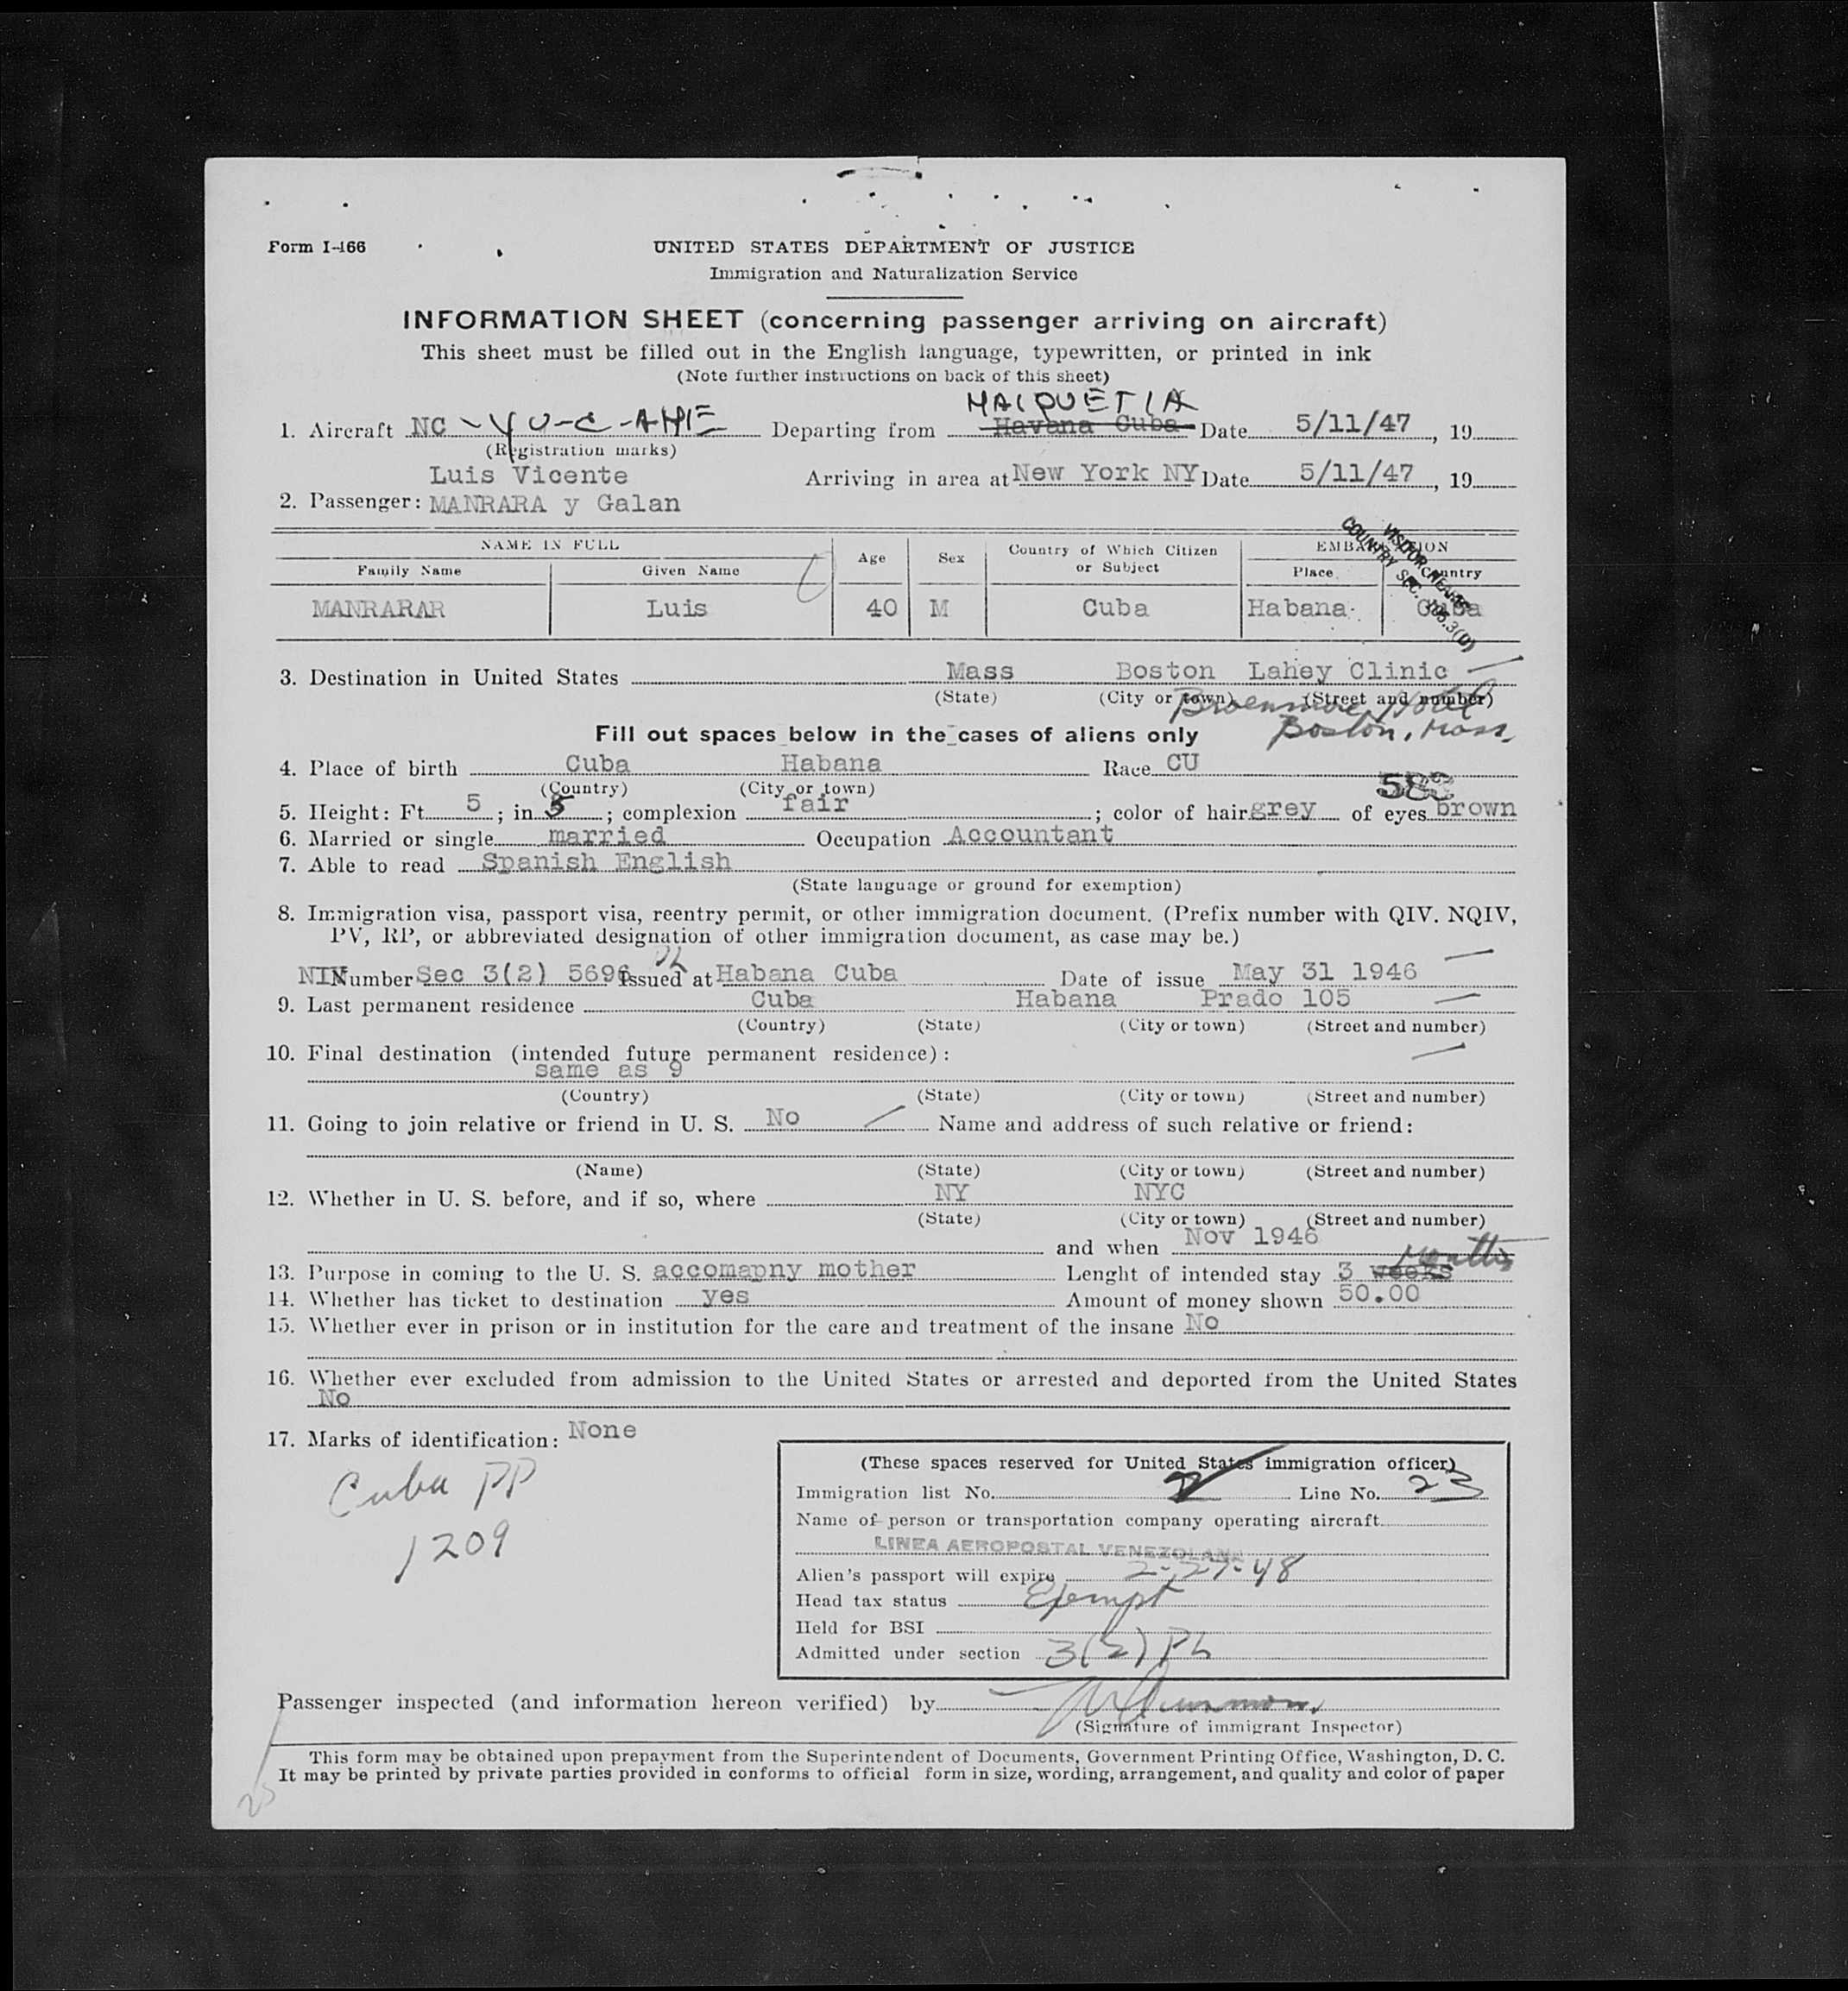 Form I-466
UNITED STATES DEPARTMENT OF JUSTICE
Immigration and Naturalization Service
INFORMATION SHEET (concerning passenger arriving on aircraft)
This sheet must be filled out in the English language, typewritten, or printed in ink
(Note further instructions on back of this sheet)
MAIQUETIA
1. Aircraft NC - YU-C-AME Departing from Havana Cuba Date 5/11/47, 19
(Registration marks)
Luis Vicente Arriving in area at New York NY Date 5/11/47, 19
2. Passenger: MANRARA y Galan
NAME IN FULL Age Sex Country of Which Citizen or Subject EMBARKATION
Family Name Given Name Place Country
VISITOR NEARBY
COUNTRY SEC. 105.3(D)
MANRARAR Luis 40 M Cuba Habana Cuba
3. Destination in United States Mass Boston Lahey Clinic
(State) (City or town) (Street and number)
Hotel
Boston, Mass.
Fill out spaces below in the cases of aliens only
4. Place of birth Cuba Habana Race CU
(Country) (City or town)
583
5. Height: Ft. 5; in 5; complexion fair; color of hair grey of eyes brown
6. Married or single married Occupation Accountant
7. Able to read Spanish English
(State language or ground for exemption)
8. Immigration visa, passport visa, reentry permit, or other immigration document. (Prefix number with QIV. NQIV,
PV, RP, or abbreviated designation of other immigration document, as case may be.)
NIV Number Sec 3(2) 5696 Issued at Habana Cuba Date of issue May 31 1946
9. Last permanent residence Cuba Habana Prado 105
(Country) (State) (City or town) (Street and number)
10. Final destination (intended future permanent residence):
same as 9
(Country) (State) (City or town) (Street and number)
11. Going to join relative or friend in U. S. No Name and address of such relative or friend:
(Name) (State) (City or town) (Street and number)
12. Whether in U. S. before, and if so, where NY NYC
(State) (City or town) (Street and number)
and when Nov 1946
13. Purpose in coming to the U. S. accomapny mother Lenght of intended stay 3 weeks months
14. Whether has ticket to destination yes Amount of money shown 50.00
15. Whether ever in prison or in institution for the care and treatment of the insane No
16. Whether ever excluded from admission to the United States or arrested and deported from the United States
No
17. Marks of identification: None
Cuba PP
1209
(These spaces reserved for United States immigration officer)
Immigration list No. 2 Line No. 23
Name of person or transportation company operating aircraft
LINEA AEROPOSTAL VENEZOLANA
Alien's passport will expire 2-27-48
Head tax status Exempt
Held for BSI
Admitted under section 3(2) PL
Passenger inspected (and information hereon verified) by
(Signature of immigrant Inspector)
This form may be obtained upon prepayment from the Superintendent of Documents, Government Printing Office, Washington, D. C.
It may be printed by private parties provided in conforms to official form in size, wording, arrangement, and quality and color of paper
25